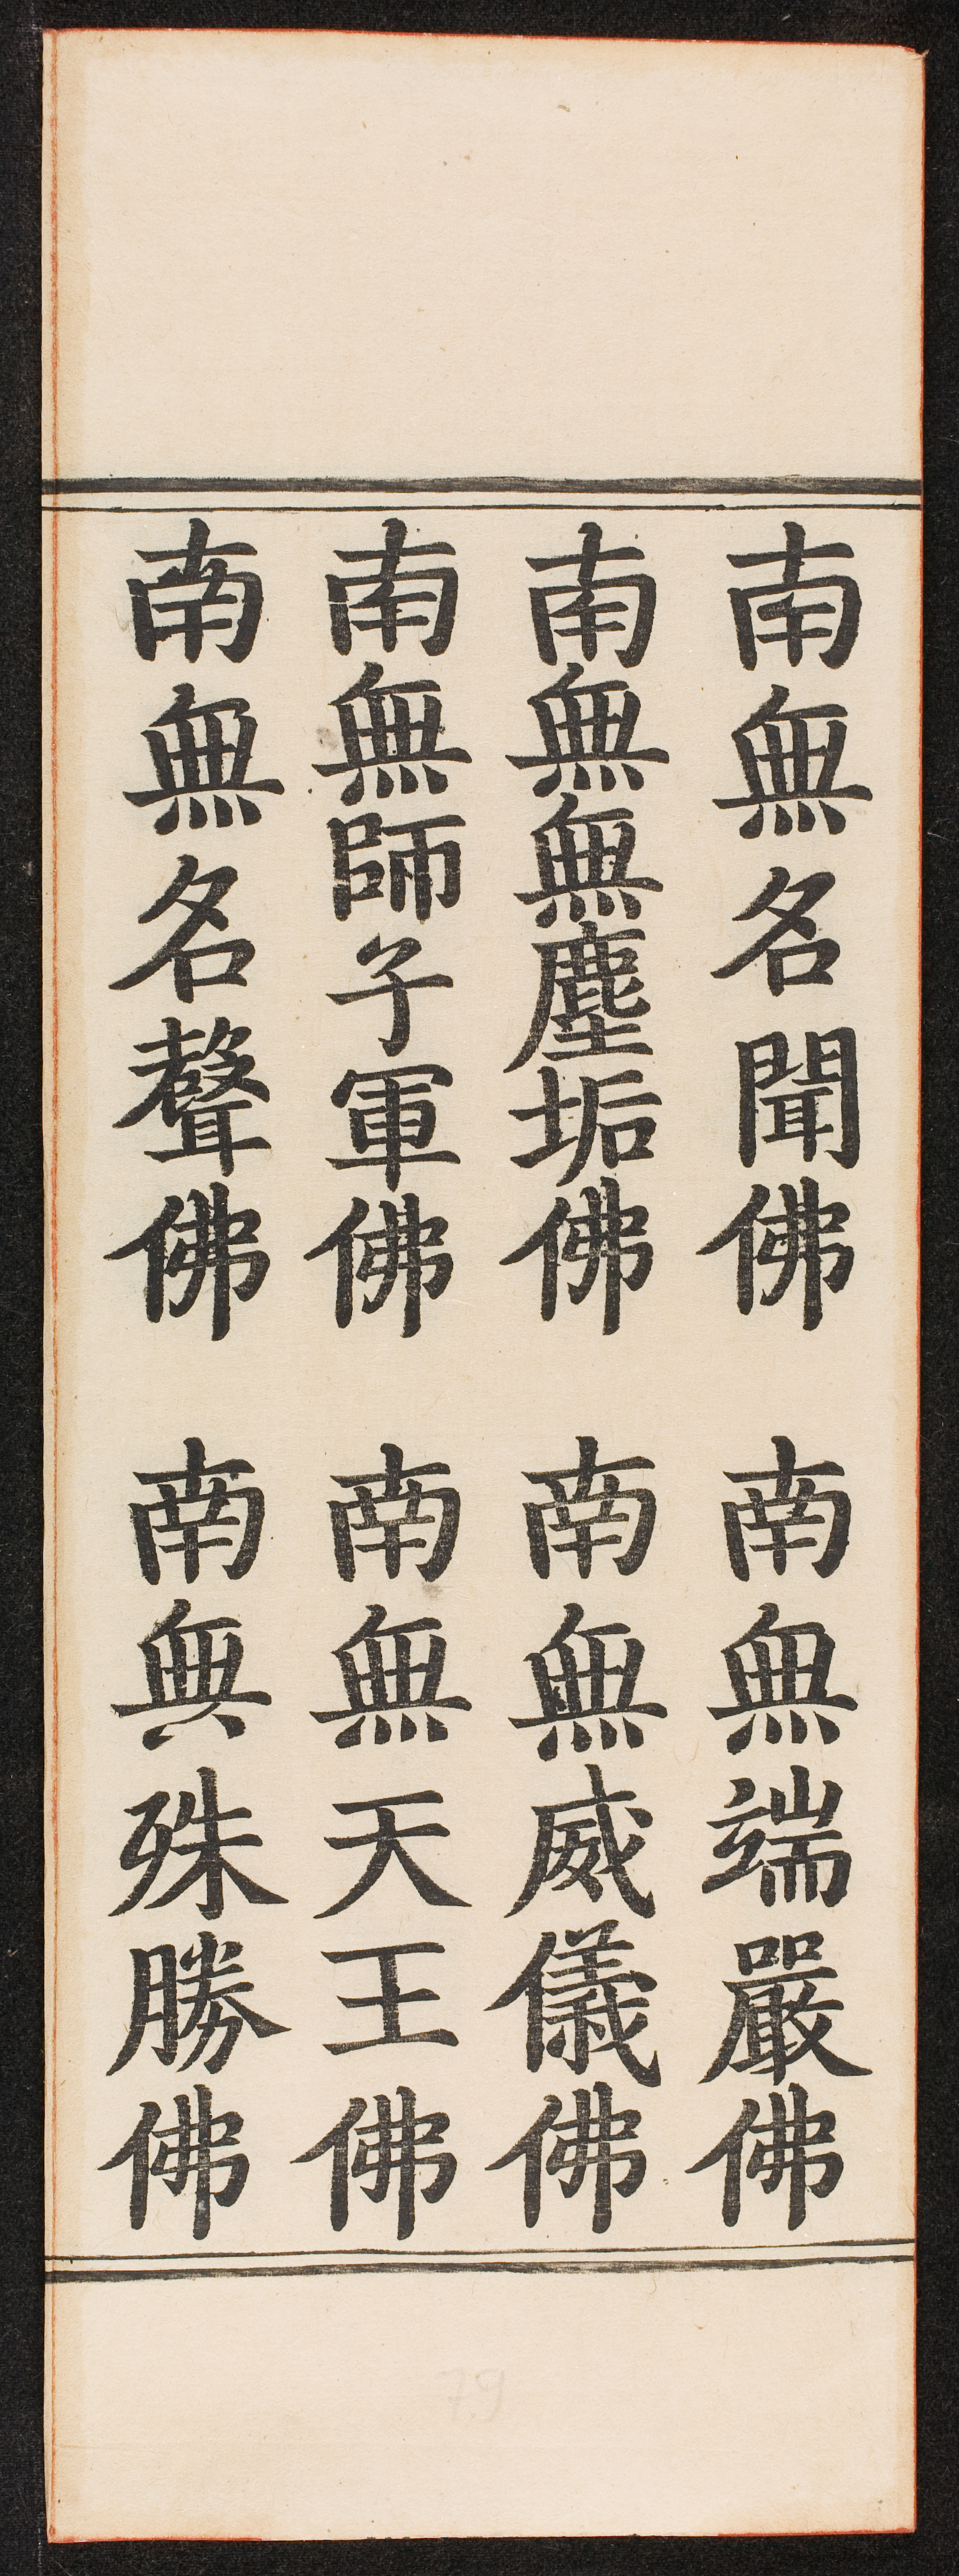 南無名聞佛 南無端嚴佛
南無無塵垢佛 南無威儀佛
南無師子軍佛 南無天王佛
南無名聲佛 南無殊勝佛
79